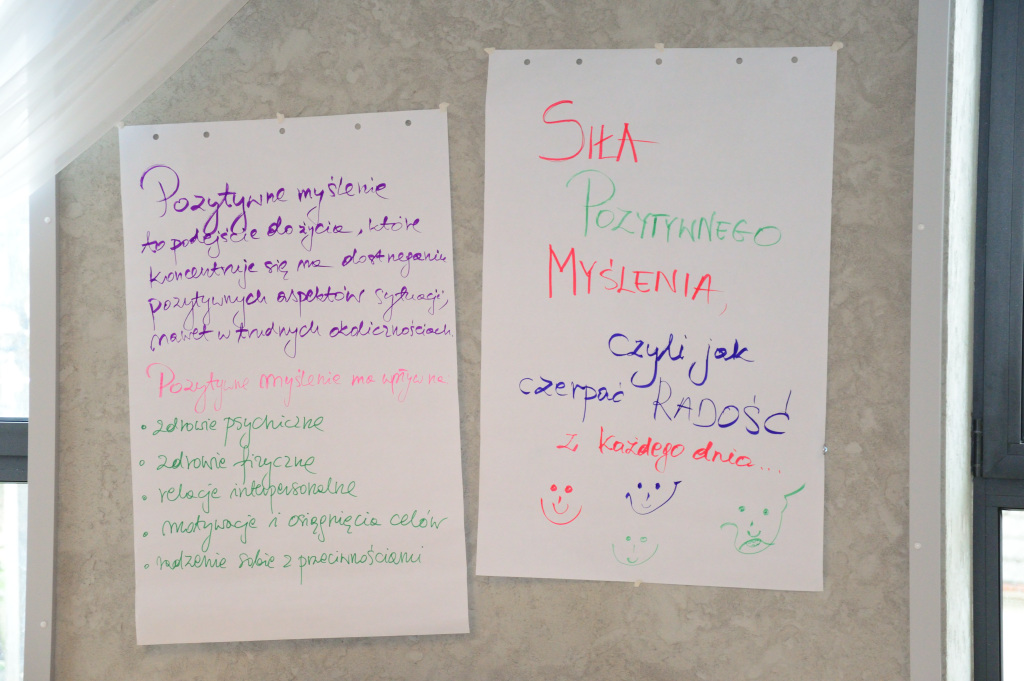 Pozytywne myślenie
to podejście do życia, które
koncentruje się na dostrzeganiu
pozytywnych aspektów sytuacji,
nawet w trudnych okolicznościach.
Pozytywne myślenie ma wpływ na
• zdrowie psychiczne
• zdrowie fizyczne
• relacje intepersonalne
• motywacje i osiągnięcia celów
• radzenie sobie z przeciwnościami
SIŁA
POZYTYWNEGO
MYŚLENIA,
czyli jak
czerpać RADOŚĆ
z każdego dnia...